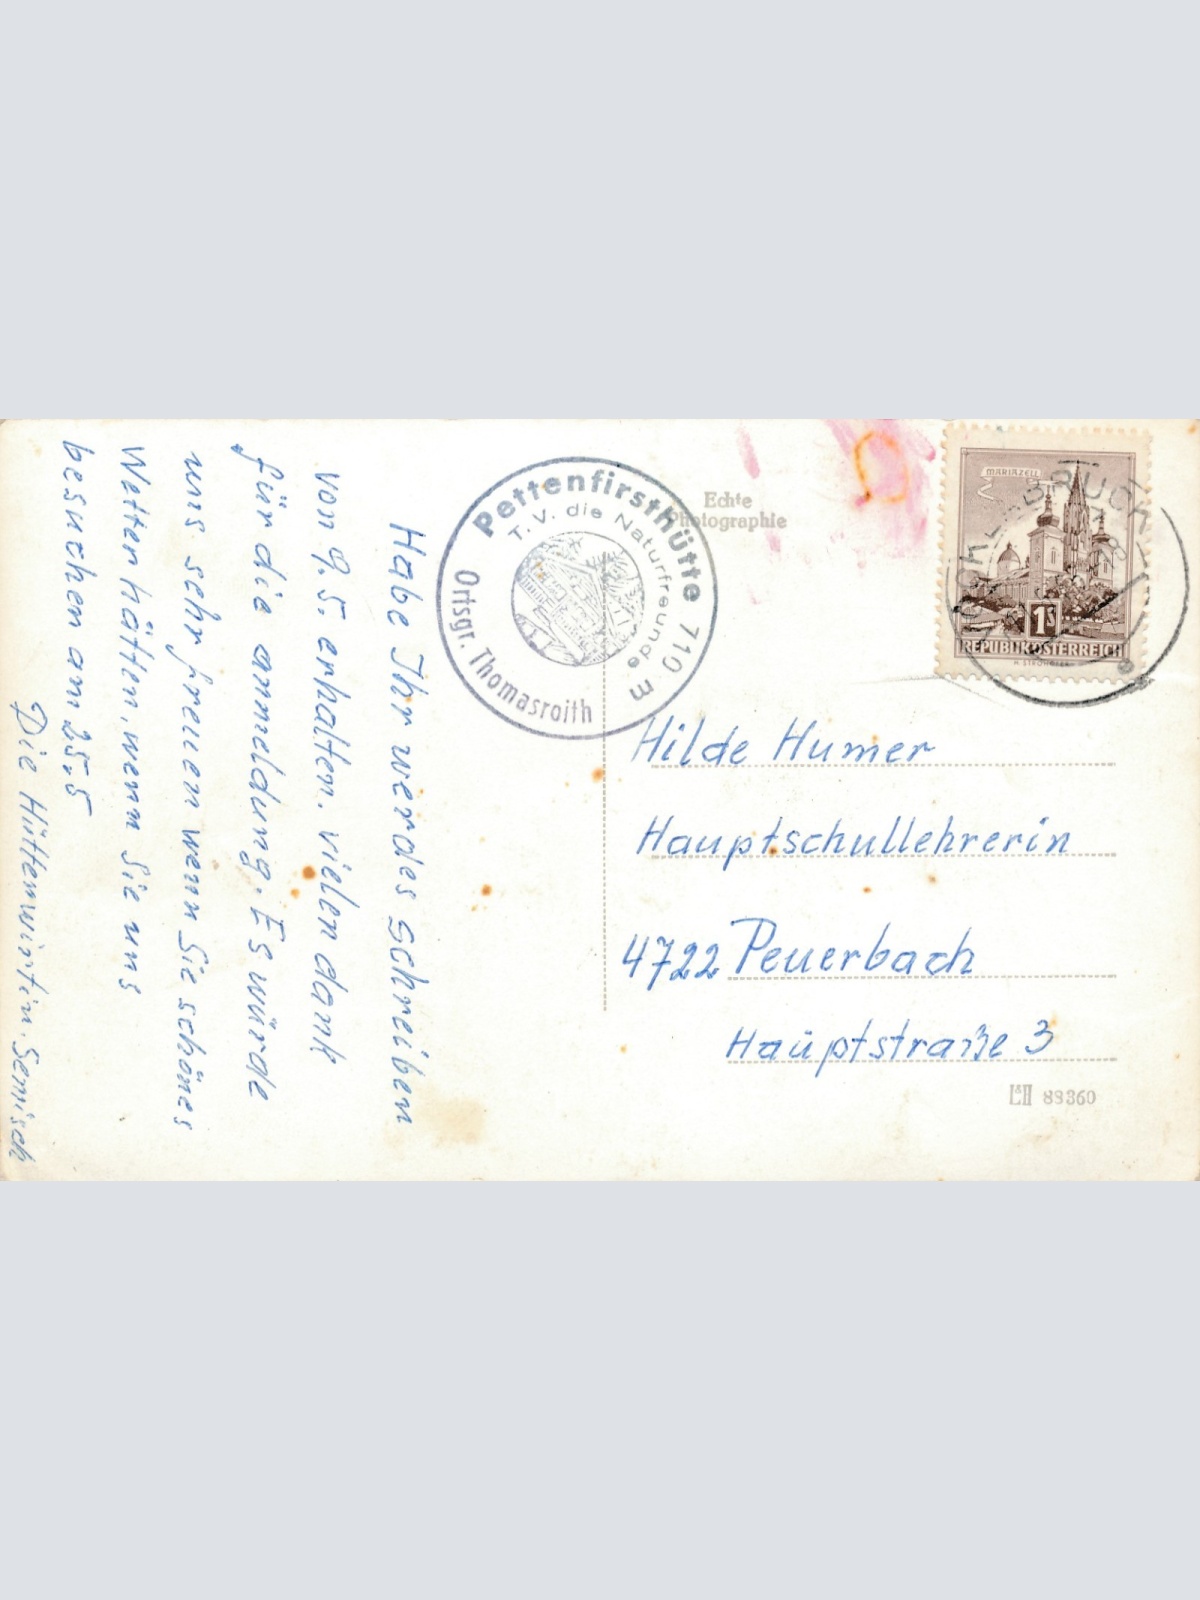 Habe Ihr werdes schreiben
von 9.5. erhalten. vielen dank
für die anmeldung. Es würde
uns sehr freuen wenn Sie schönes
Wetter hätten, wenn Sie uns
besuchen am 25.5
Die Hüttenwirtin. Semisch
Pettenfirsthütte 710 m
T.V. die Naturfreunde
Ortsgr. Thomasroith
Echte
Photographie
MARIAZELL
1S
REPUBLIK ÖSTERREICH
VÖCKLABRUCK
Hilde Humer
Hauptschullehrerin
4722 Peuerbach
Hauptstraße 3
88360